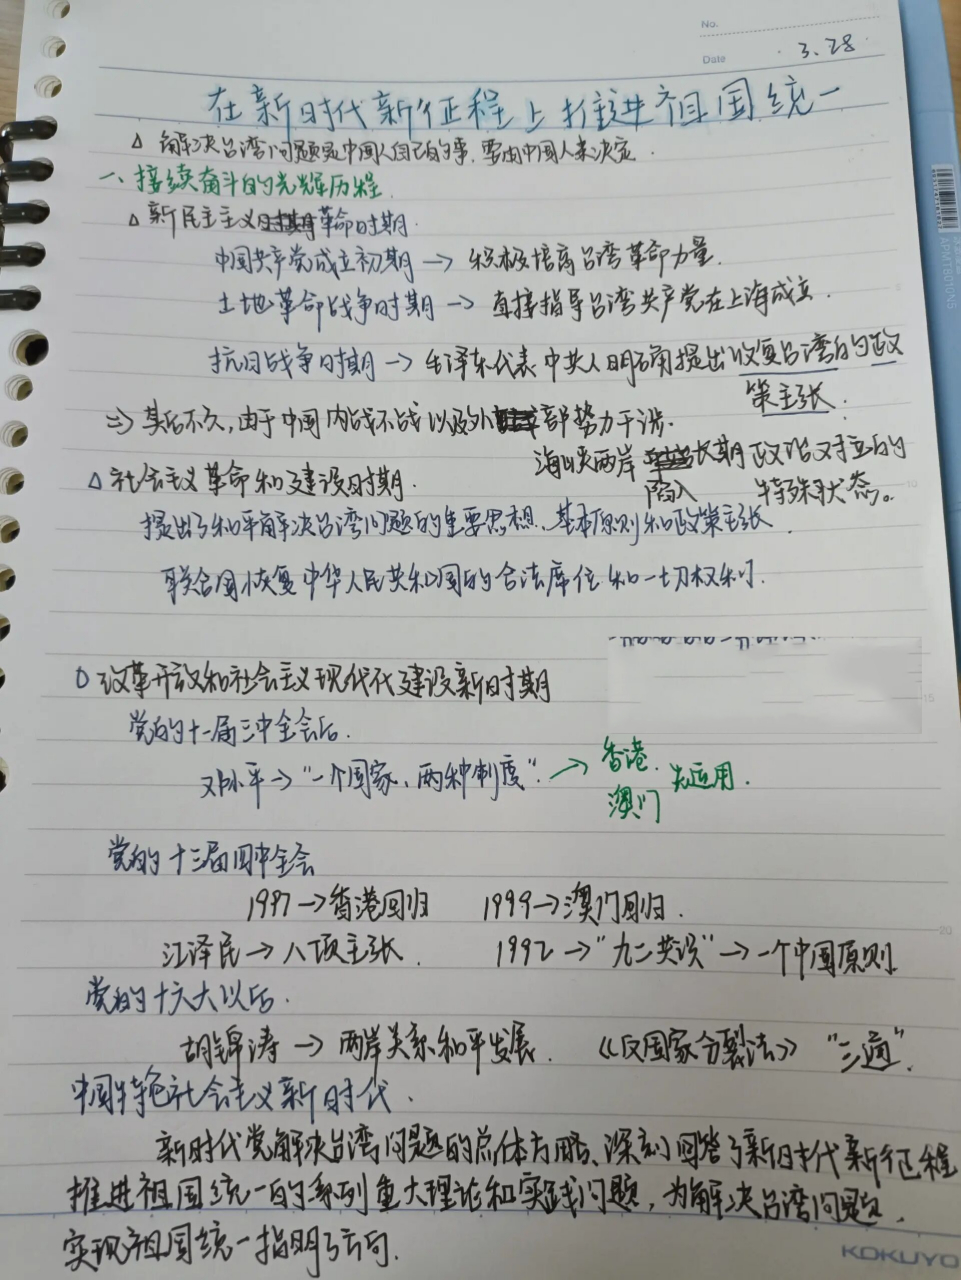 No.
Date 3.28
在新时代新征程上推进祖国统一
△ 解决台湾问题是中国人自己的事，要由中国人来决定.
一、接续奋斗的光辉历程.
△ 新民主主义革命时期.
中国共产党成立初期 → 积极培育台湾革命力量.
土地革命战争时期 → 直接指导台湾共产党在上海成立.
抗日战争时期 → 毛泽东代表中共人明确提出收复台湾的政
策主张.
⇒ 其后不久，由于中国内战不战以及外部势力干涉.
海峡两岸陷入长期政治对立的
特殊状态。
△ 社会主义革命和建设时期.
提出了和平解决台湾问题的重要思想、基本原则和政策主张.
联合国恢复中华人民共和国的合法席位和一切权利.
△ 改革开放和社会主义现代化建设新时期
党的十一届三中全会后.
邓小平→"一个国家，两种制度". → 香港. 澳门 先运用.
党的十三届四中全会
1997→香港回归 1999→澳门回归.
江泽民→八项主张. 1992→"九二共识"→一个中国原则
党的十六大以后.
胡锦涛 → 两岸关系和平发展. 《反国家分裂法》 "三通".
中国特色社会主义新时代.
新时代党解决台湾问题的总体方略、深刻回答了新时代新征程
推进祖国统一的系列重大理论和实践问题，为解决台湾问题，
实现祖国统一指明了方向.
KOKUYO